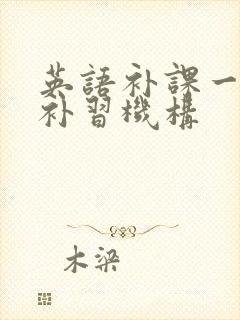 英語补課一
补習機構
木梁